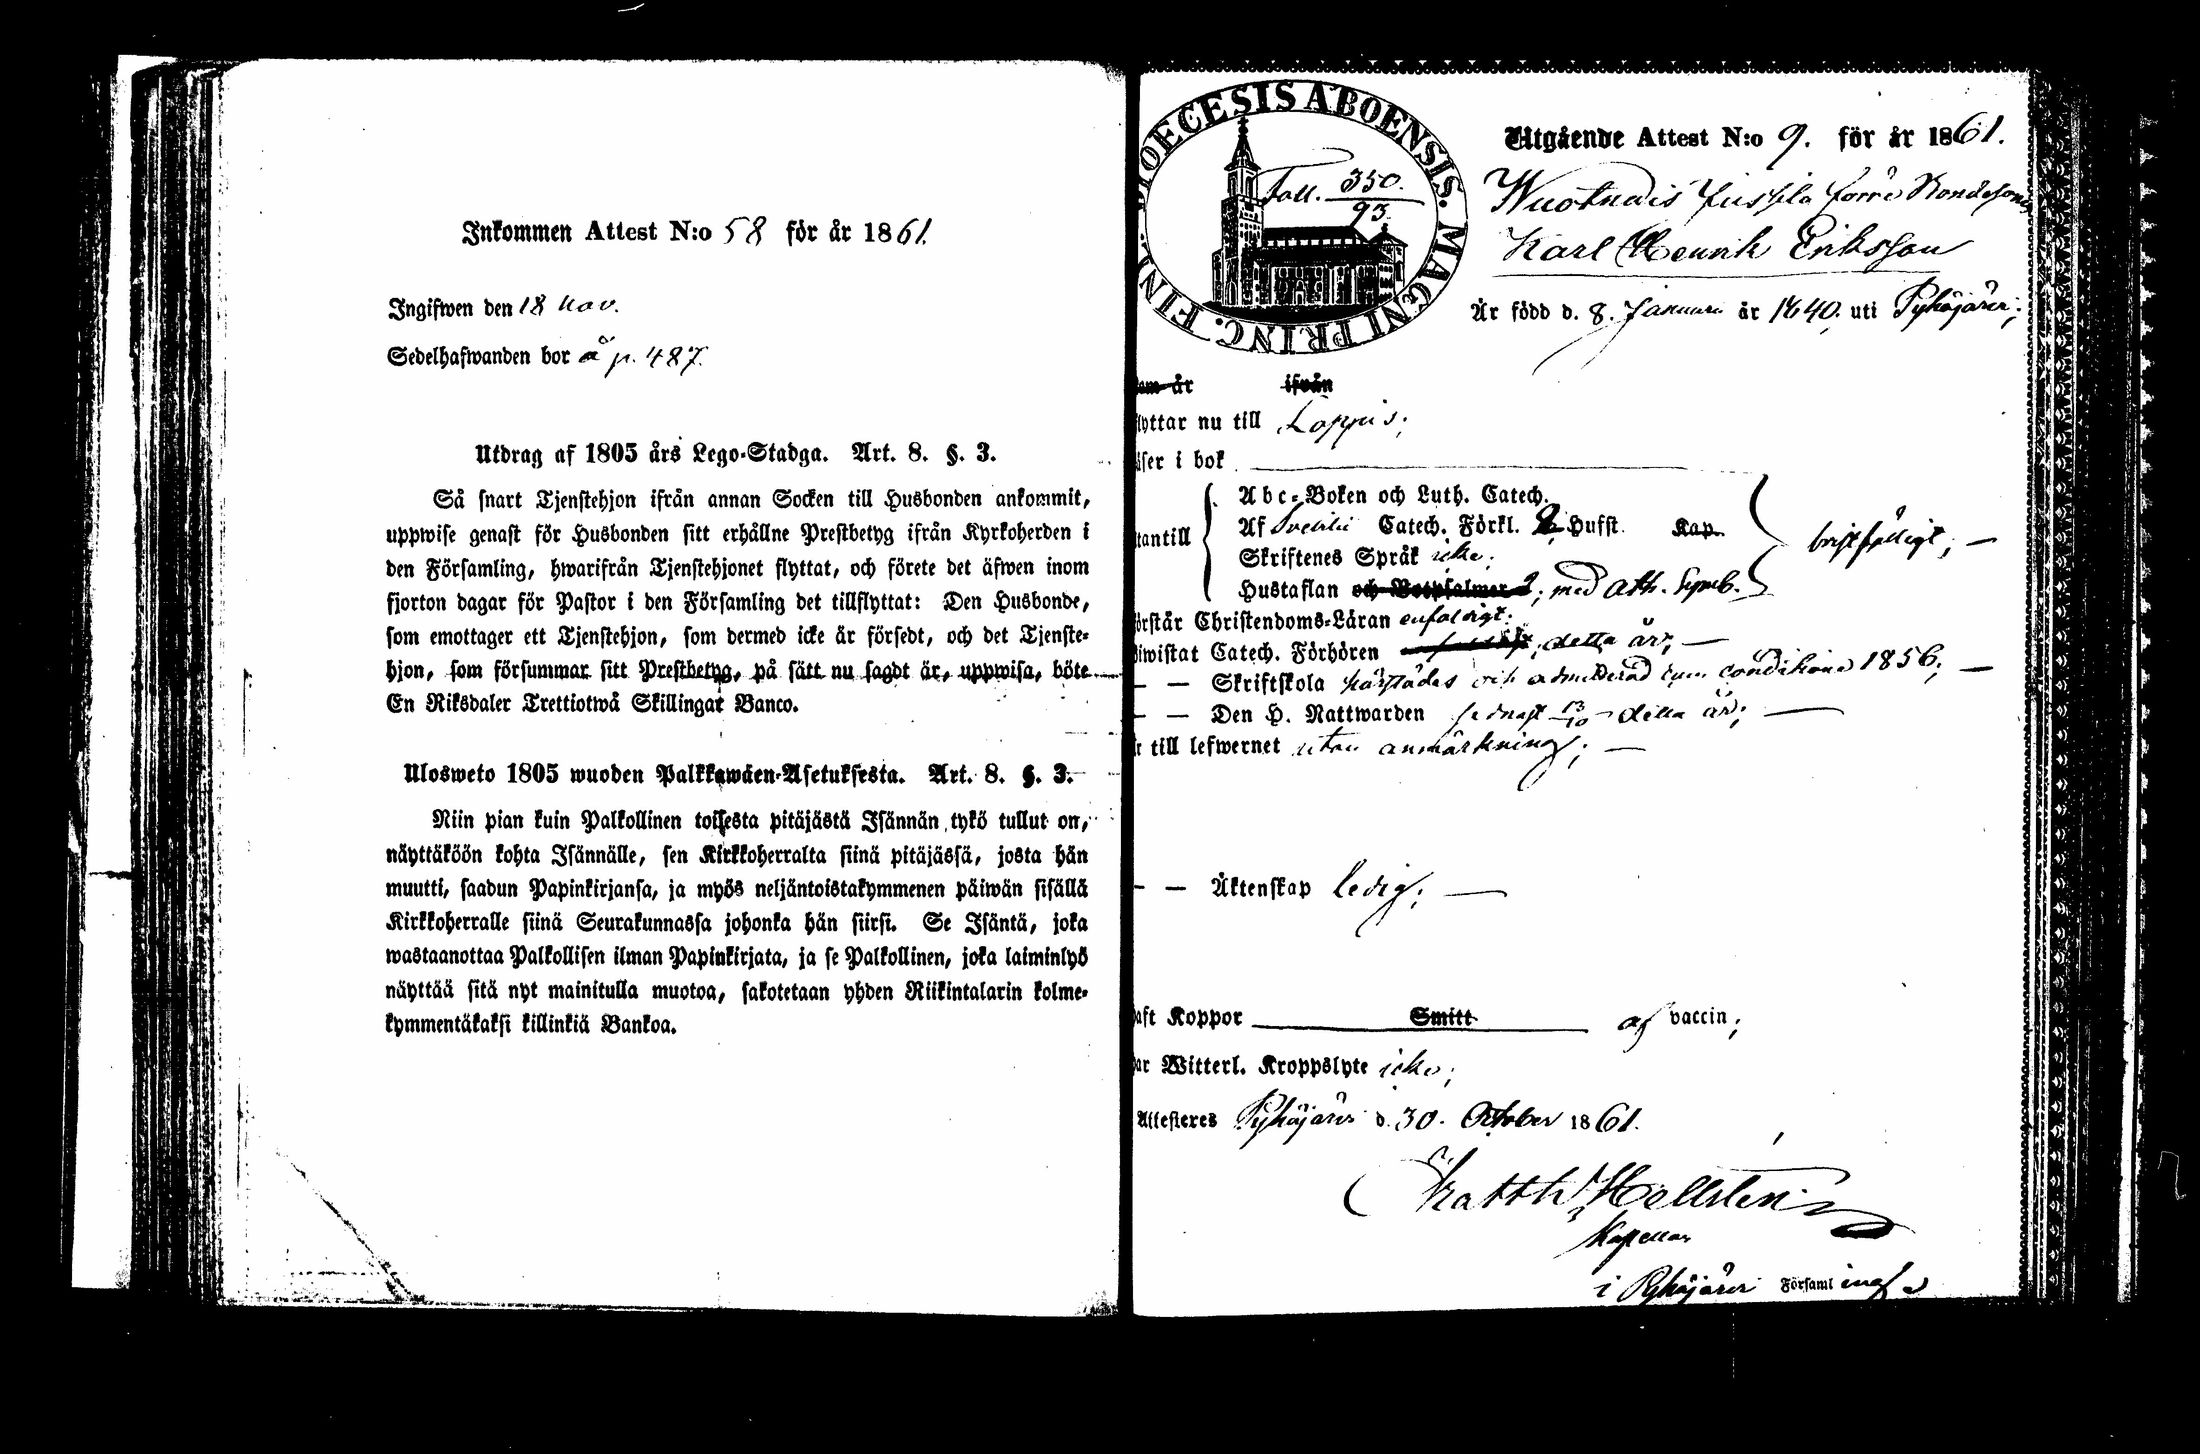 Inkommen Attest N:o 58 för år 1861.
Ingifwen den 18 Nov.
Sedelhafwanden bor å p. 487.
Utdrag af 1805 års Lego-Stadga. Art. 8. §. 3.
Så snart Tjenstehjon ifrån annan Socken till Husbonden ankommit,
uppwise genast för Husbonden sitt erhållne Prestbetyg ifrån Kyrkoherden i
den Församling, hwarifrån Tjenstehjonet flyttat, och förete det äfwen inom
fjorton dagar för Pastor i den Församling det tillflyttat: Den Husbonde,
som emottager ett Tjenstehjon, som dermed icke är försedt, och det Tjenste-
hjon, som försummar sitt Prestbetyg, på sätt nu sagdt är, uppwisa, böte
En Riksdaler Trettiotwå Skillingar Banco.
Ulosweto 1805 wuoden Palkkawäen-Asetuksesta. Art. 8. §. 3.
Niin pian kuin Palkollinen toisesta pitäjästä Isännän tykö tullut on,
näyttäköön kohta Isännälle, sen Kirkkoherralta siinä pitäjässä, josta hän
muutti, saadun Papinkirjansa, ja myös neljäntoistakymmenen päiwän sisällä
Kirkkoherralle siinä Seurakunnassa johonka hän siirsi. Se Isäntä, joka
wastaanottaa Palkollisen ilman Papinkirjata, ja se Palkollinen, joka laiminlyö
näyttää sitä nyt mainitulla muotoa, sakotetaan yhden Riikintalarin kolme-
kymmentäkaksi killinkiä Bankoa.
DIOECESIS ABOENSIS. MAGNI PRINC. FINL.
Fall. 350.
93.
Utgående Attest N:o 9. för år 1861.
Karl Henrik Eriksson
Är född d. 8. Januari år 1840. uti Pyhäjärvi;
år ifrån
flyttar nu till Loppis;
läser i bok
Abc-Boken och Luth. Catech.
Af Svebilii Catech. Förkl. 2 Hufst. Kap.
utantill
Skriftenes Språk icke;
bristfälligt;
Hustaflan och Botpsalmer 2; med Ath. Symb.
förstår Christendoms-Läran enfaldigt;
biwistat Catech. Förhören detta år;
— — Skriftskola härstädes och admitterad cum conditione 1856;
— — Den H. Nattwarden sednast 13/10 detta år;
är till lefwernet utan anmärkning;
— — Äktenskap ledig;
haft Koppor Smitt af vaccin;
har Witterl. Kroppslyte icke;
Attesteres Pyhäjärvi d. 30. October 1861.
Matth. Hellsten
Kapellan
i Pyhäjärvi Församling